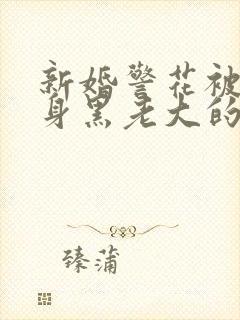 新婚警花被
身黑老大的
臻蒲